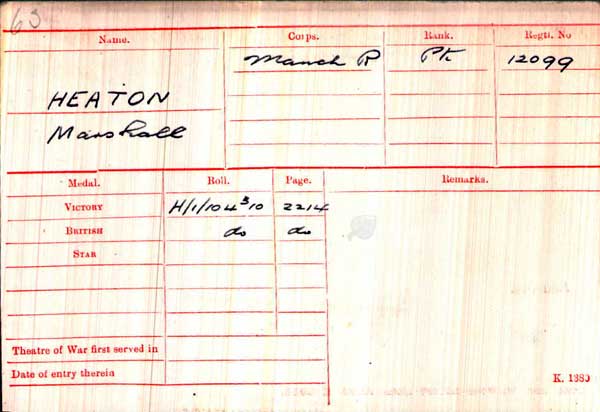 63
Name. Corps. Rank. Regtl. No
Manch R Pte 12099
HEATON
Marshall
Medal. Roll. Page. Remarks.
VICTORY H/1/104 B10 2214
BRITISH do do
STAR
Theatre of War first served in
Date of entry therein
K. 1380